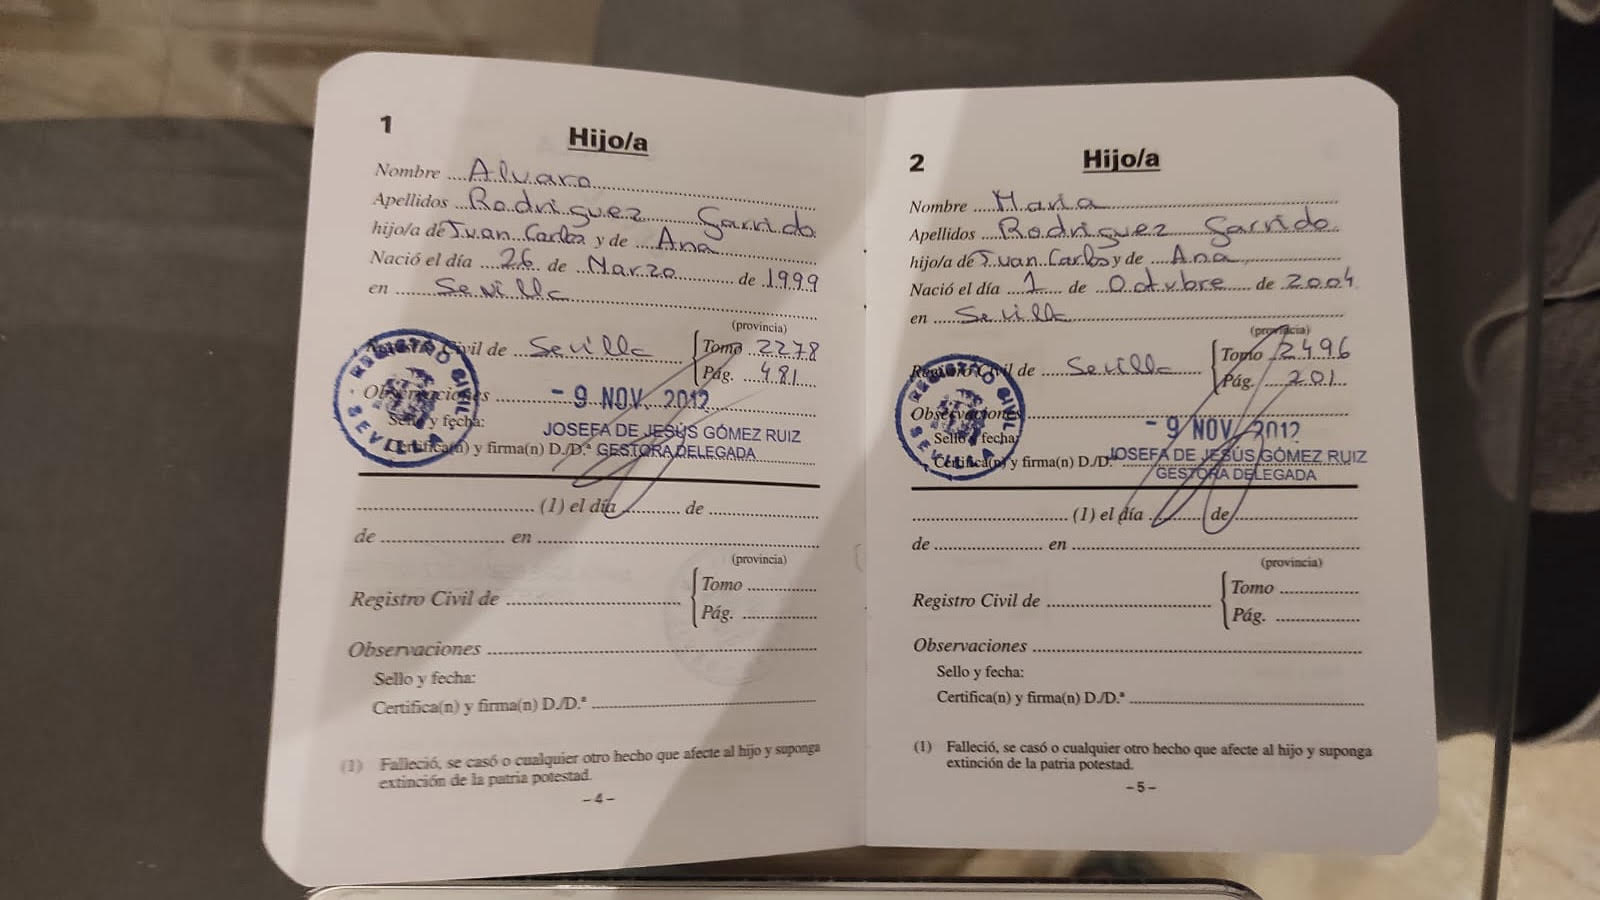 1
Hijo/a
Nombre Alvaro
Apellidos Rodriguez Garrido
hijo/a de Juan Carlos y de Ana
Nació el día 26 de Marzo de 1999
en Sevilla
(provincia)
Registro Civil de Sevilla Tomo 2278
Pág. 481
Observaciones - 9 NOV. 2012
Sello y fecha:
JOSEFA DE JESÚS GÓMEZ RUIZ
Certifica(n) y firma(n) D./D.ª GESTORA DELEGADA
REGISTRO CIVIL
SEVILLA
(1) el día de
de en
(provincia)
Registro Civil de Tomo
Pág.
Observaciones
Sello y fecha:
Certifica(n) y firma(n) D./D.ª
(1) Falleció, se casó o cualquier otro hecho que afecte al hijo y suponga
extinción de la patria potestad.
– 4 –
2
Hijo/a
Nombre Maria
Apellidos Rodriguez Garrido
hijo/a de Juan Carlos y de Ana
Nació el día 1 de Octubre de 2004
en Sevilla
(provincia)
Registro Civil de Sevilla Tomo 2496
Pág. 201
Observaciones
Sello y fecha: - 9 NOV. 2012
Certifica(n) y firma(n) D./D.ª JOSEFA DE JESÚS GÓMEZ RUIZ
GESTORA DELEGADA
REGISTRO CIVIL
SEVILLA
(1) el día de
de en
(provincia)
Registro Civil de Tomo
Pág.
Observaciones
Sello y fecha:
Certifica(n) y firma(n) D./D.ª
(1) Falleció, se casó o cualquier otro hecho que afecte al hijo y suponga
extinción de la patria potestad.
– 5 –